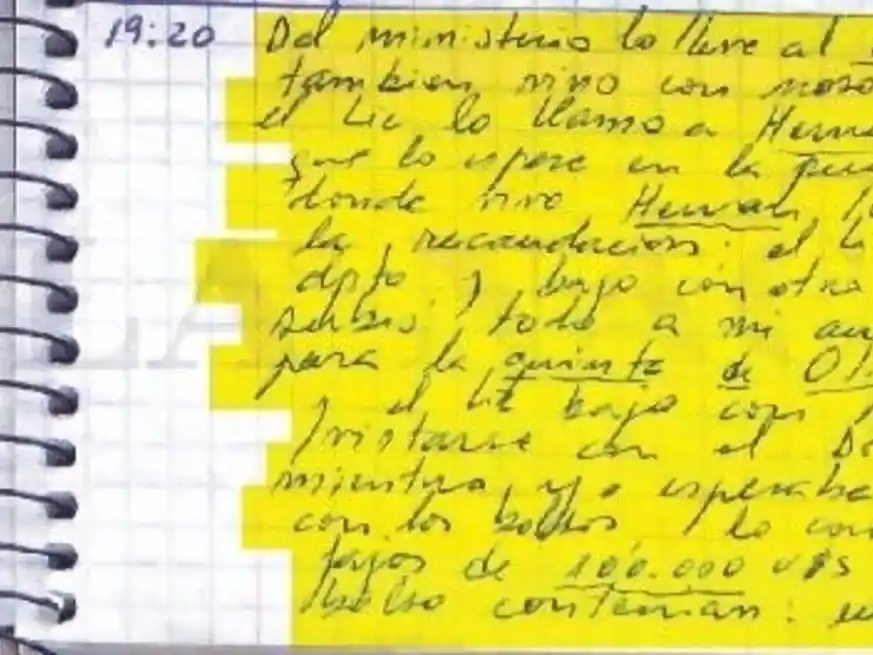 19:20 Del ministerio lo lleve al
tambien vino con noso
el Lic lo llamo a Herna
que lo espere en la pue
donde vive Hernan,
la recaudacion: el L
dpto y bajo con otro
subio todo a mi au
para la quinta de Ol
y el Lic bajo con
con el Do
mientras yo esperaba
con los bolsos lo con
fajos de 100.000 U$S
bolso contenian: u